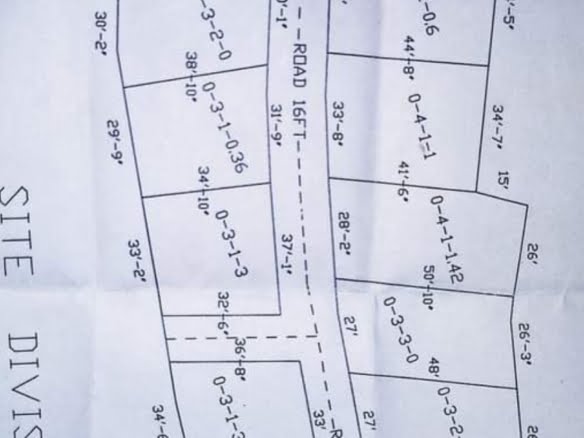 30'-2"
0-3-2-0
38'-10"
ROAD 16FT
44'-8"
-0.6
'-5"
29'-9"
0-3-1-0.36
34'-10"
31'-9"
33'-8"
0-4-1-1
41'-6"
34'-7"
15'
33'-2"
0-3-1-3
32'-6"
37'-1"
28'-2"
0-4-1-1.42
50'-10"
26'
36'-8"
27'
0-3-3-0
48'
26'-3"
34'-6
0-3-1-3
33'
27'
0-3-2
SITE DIVIS